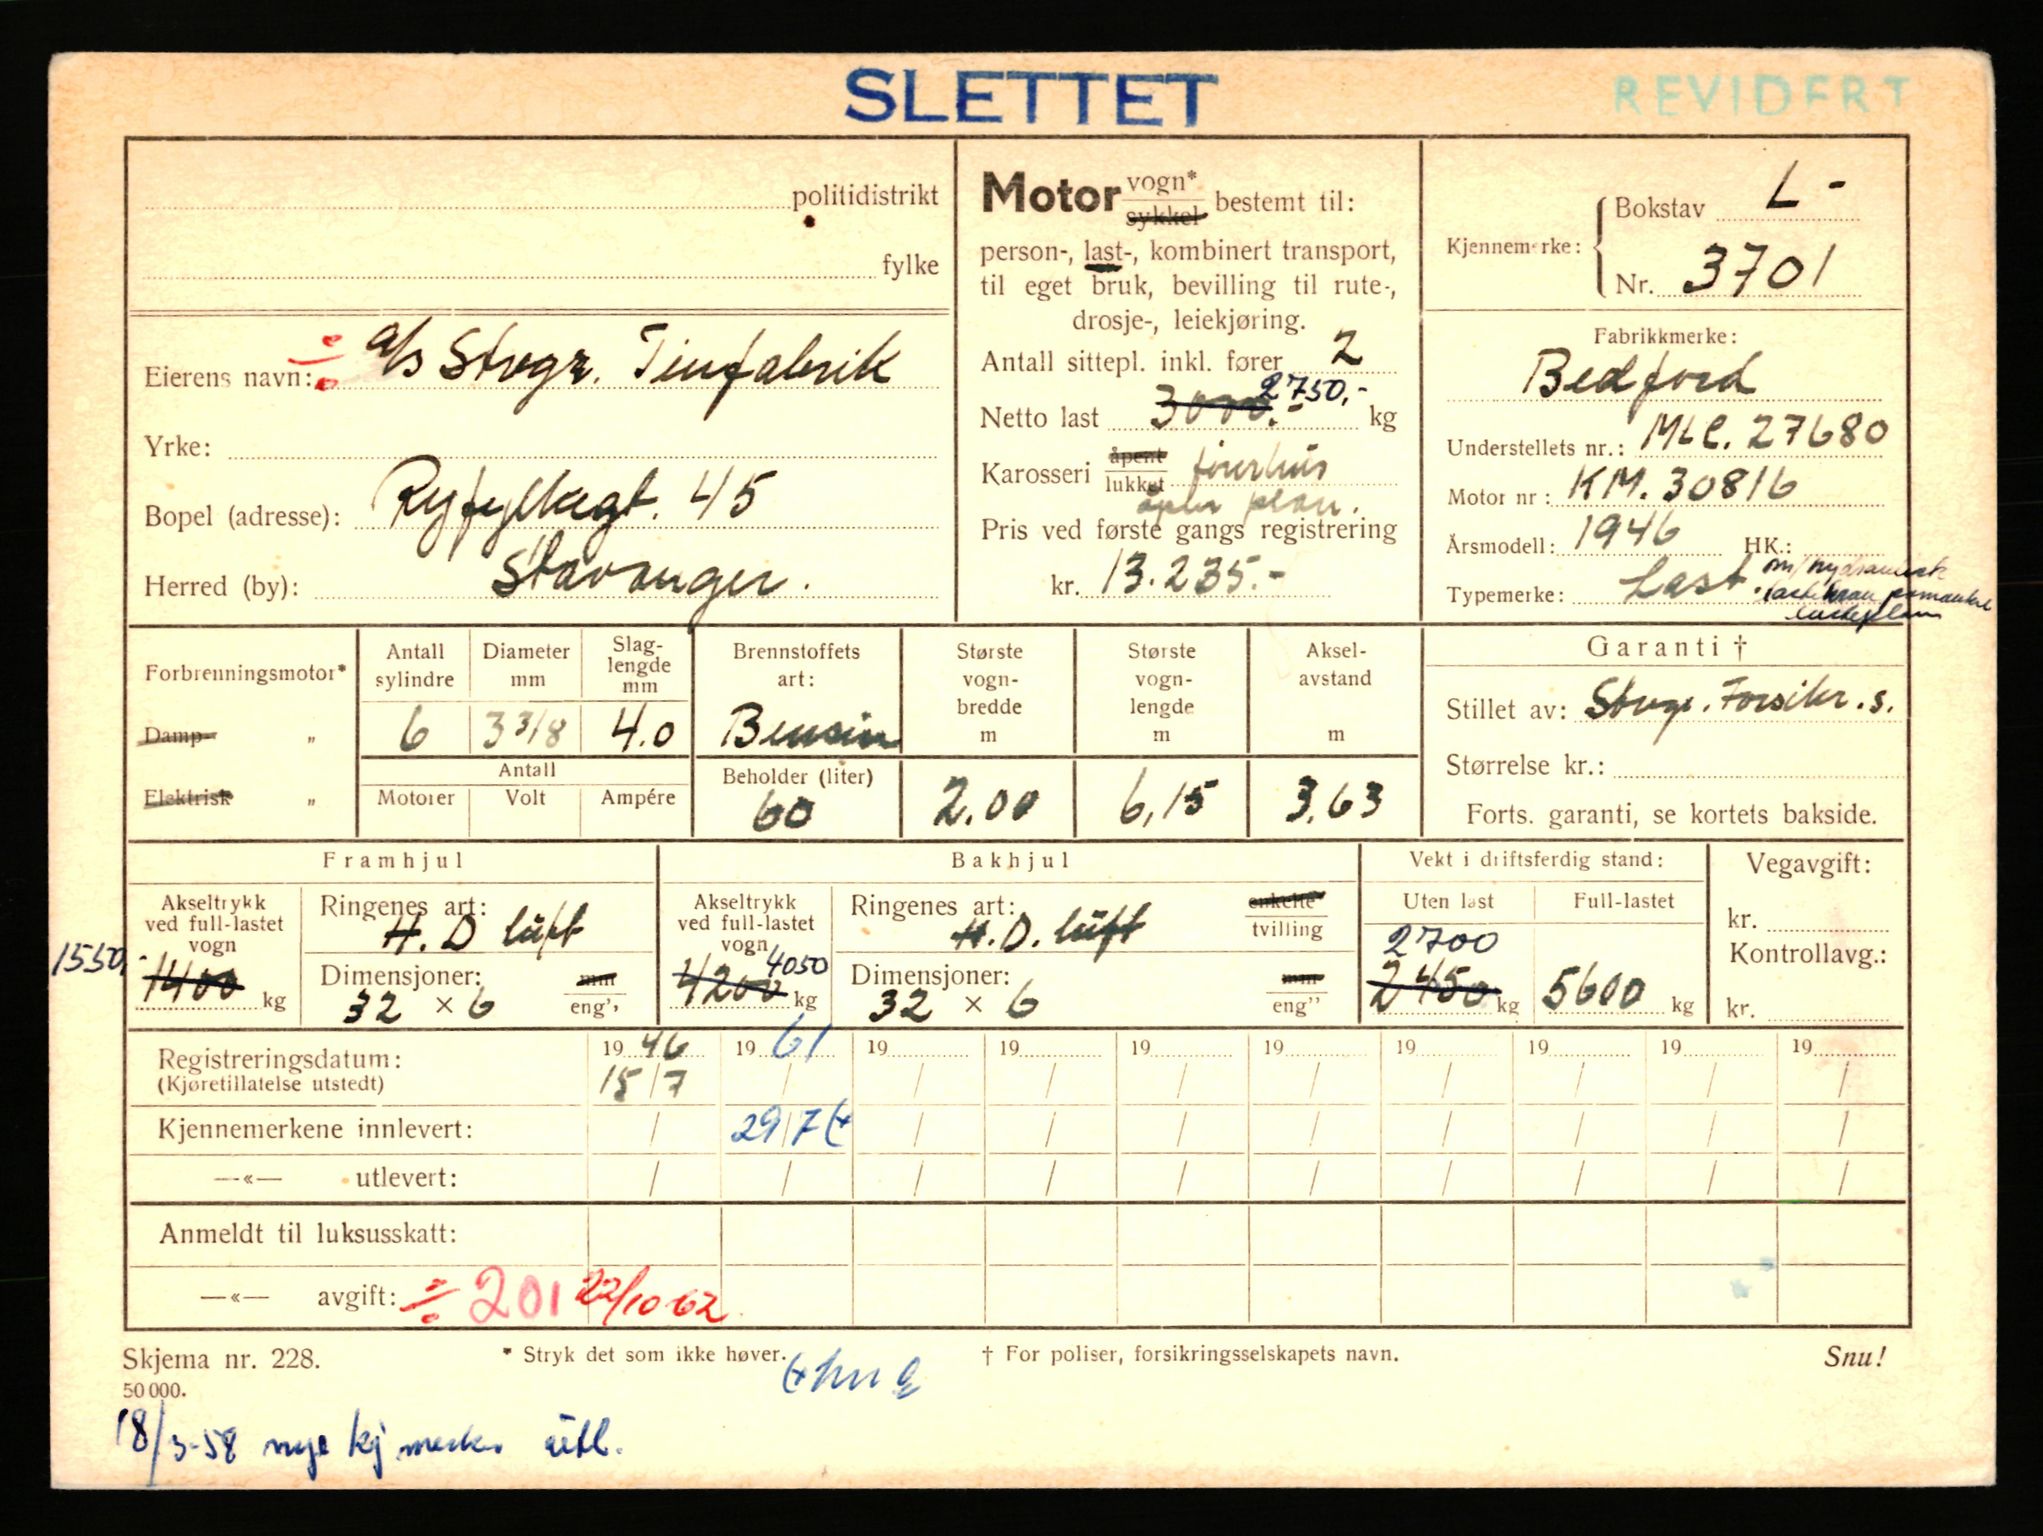 SLETTET
REVIDERT
politidistrikt
fylke
Eierens navn: ÷ a/s Stvgr. Tinfabrik
Yrke:
Bopel (adresse): Ryfylkegt. 45
Herred (by): Stavanger.
Motor vogn* sykkel bestemt til:
person-, last-, kombinert transport,
til eget bruk, bevilling til rute-,
drosje-, leiekjøring.
Antall sittepl. inkl. fører 2
Netto last 3000.- 2750,- kg
Karosseri åpent lukket førerhus
åpen plan.
Pris ved første gangs registrering
kr. 13.235.-
Kjennemerke: Bokstav L-
Nr. 3701
Fabrikkmerke:
Bedford
Understellets nr.: MLC. 27680
Motor nr: KM. 30816
Årsmodell: 1946 HK.:
Typemerke: Last. m/hydraulisk
lastekran
lasteplan
Forbrenningsmotor*
Damp "
Elektrisk "
Antall sylindre
6
Diameter mm
3 3/8
Slag-lengde mm
4.0
Antall
Motorer Volt Ampére
Brennstoffets art:
Bensin
Beholder (liter)
60
Største vogn-bredde m
2.00
Største vogn-lengde m
6,15
Aksel-avstand m
3.63
Garanti †
Stillet av: Stvgr. Forsikr. s.
Størrelse kr.:
Forts. garanti, se kortets bakside.
Framhjul
Akseltrykk ved full-lastet vogn
1550,-
1400 kg
Ringenes art:
H. D luft
Dimensjoner: mm
32 × 6 eng''
Bakhjul
Akseltrykk ved full-lastet vogn
4050
4200 kg
Ringenes art: enkelte
H. D. luft tvilling
Dimensjoner: mm
32 × 6 eng''
Vekt i driftsferdig stand:
Uten last Full-lastet
2700
2450 kg 5600 kg
Vegavgift:
kr.
Kontrollavg.:
kr.
Registreringsdatum: 1946 1961 19 19 19 19 19 19 19 19
(Kjøretillatelse utstedt) 15/7 / / / / / / / / /
Kjennemerkene innlevert: / 29/7 / / / / / / / /
—«— utlevert: / / / / / / / / / /
Anmeldt til luksusskatt:
—«— avgift: ÷ 201 22/10-62
Skjema nr. 228.
50 000.
* Stryk det som ikke høver.
† For poliser, forsikringsselskapets navn.
Snu!
18/3-58 nye kj merker utl.